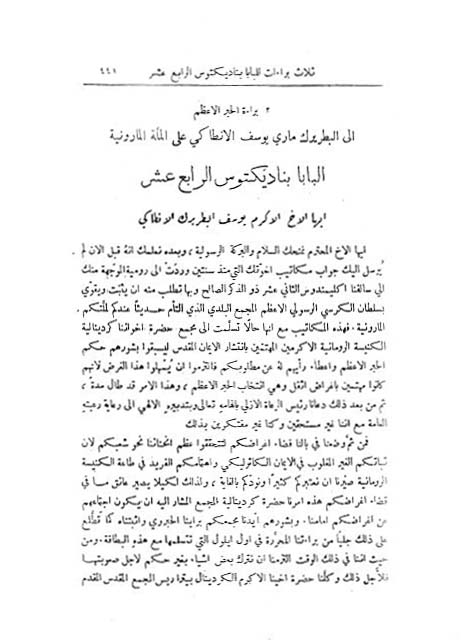 ثلاث براءات للبابا بناديكتوس الرابع عشر ٤٤١
٢ براءة الحبر الاعظم
الى البطريرك ماري يوسف الانطاكي على الملة المارونية
البابا بناديكتوس الرابع عشر
ايها الاخ الاكرم يوسف البطريرك الانطاكي
ايها الاخ المحترم نمنحك السلام والبركة الرسولية، وبعده نعلمك انه قبل الان لم
يُرسل اليك جواب مكاتيب اخوّتك التي منذ سنتين وردتْ الى رومية الموجّهة منك
الى سالفنا اكليمندوس الثاني عشر ذو الذكر الصالح وبها تطلب منه ان يثبّت ويقوّي
بسلطان الكرسي الرسولي الاعظم المجمع البلدي الذي التأم حديثاً عندكم لملّتكم
المارونية. فهذه المكاتيب مع انها حالًا تسلّمت الى مجمع حضرة اخواننا كردينالية
الكنيسة الرومانية الاكرمين المهتمّين بانتشار الايمان المقدس ليسبقوا بشورهم حكم
الحبر الاعظم واعطاء رأيهم له عن مطلوبكم فالتزموا ان يُمهلوا هذا الغرض لانهم
كانوا مهتمّين باغراض اثقل وهي انتخاب الحبر الاعظم، وهذا الامر قد طال مدة،
ثم من بعد ذلك دعانا رئيس الرعاة الازلي بالهامهِ تعالى وبتدبيرهِ الالهي الى رعاية رعيتهِ
العامة مع اننا غير مستحقين وكنا غير مفتكرين بذلك
فمن ثمّ وضعنا في بالنا قضاء اغراضكم لتتحققوا عظم انحنائنا نحو شعبكم لان
ثباتكم الغير المغلوب في الايمان الكاثوليكي واهتمامكم الفريد في طاعة الكنيسة
الرومانية صيّرنا ان نعتبركم كثيرًا ونودّكم بالغاية، ولذلك لكيلا يصير عائق ما في
قضاء اغراضكم هذه امرنا حضرة كردينالية المجمع المشار اليه ان يكون اجتماعهم
عن اغراضكم امامنا. وبشورهم ايّدنا مجمعكم برأينا الحبروي واثبتناه كما تطّلع
على ذلك جلياً من براءتنا المحرّرة في اول ايلول التي تتسلّمها مع هذه البطاقة. ومن
حيث اننا في ذلك الوقت التزمنا ان نترك بعض اشياء بغير حكم لاجل صعوبتها
فلأجل ذلك وكلنا حضرة اخينا الاكرم الكردينال بيترا رئيس المجمع المقدس المقدم